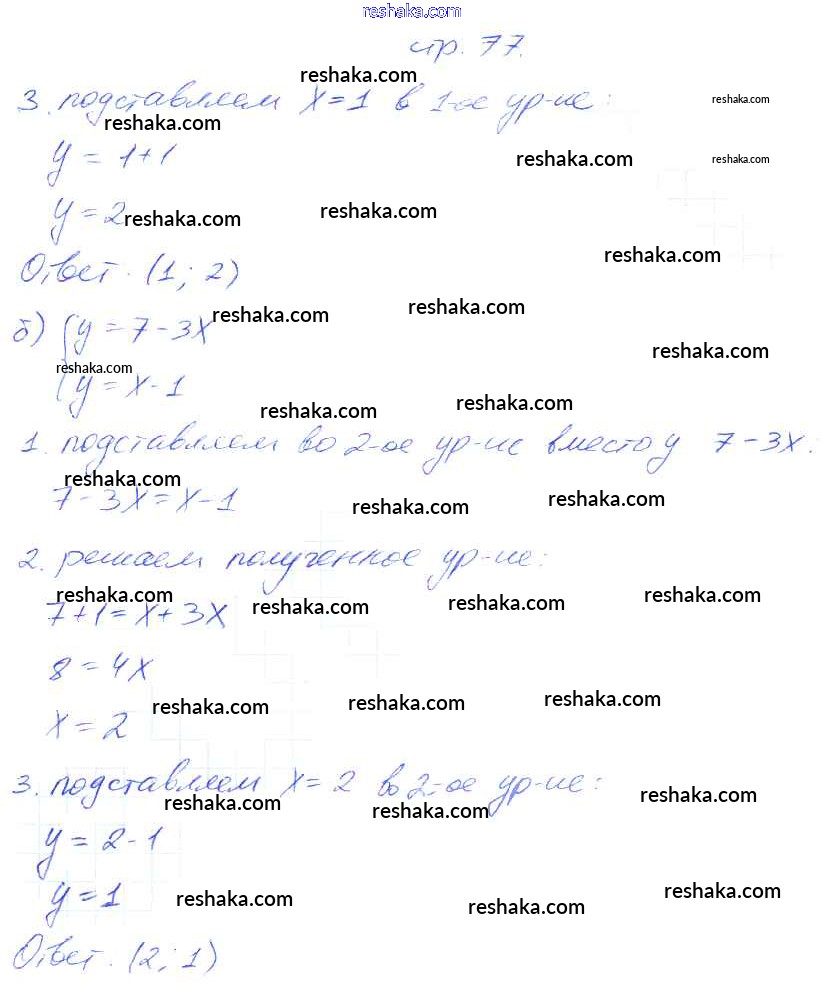 reshaka.com
стр. 77.
reshaka.com
3. подставляем x=1 в 1-ое ур-ие:
reshaka.com
reshaka.com
y = 1+1
reshaka.com reshaka.com
y = 2 reshaka.com reshaka.com
reshaka.com
Ответ. (1; 2)
б) { y = 7-3x reshaka.com reshaka.com
reshaka.com reshaka.com
y = x-1
reshaka.com reshaka.com
1. подставляем во 2-ое ур-ие вместо y 7-3x:
reshaka.com
7-3x = x-1 reshaka.com reshaka.com
2. решаем полученное ур-ие:
reshaka.com reshaka.com reshaka.com reshaka.com
7+1 = x+3x
8 = 4x
reshaka.com reshaka.com reshaka.com
x = 2
3. подставляем x = 2 во 2-ое ур-ие:
reshaka.com reshaka.com reshaka.com
y = 2-1
y = 1 reshaka.com reshaka.com reshaka.com
Ответ. (2; 1)